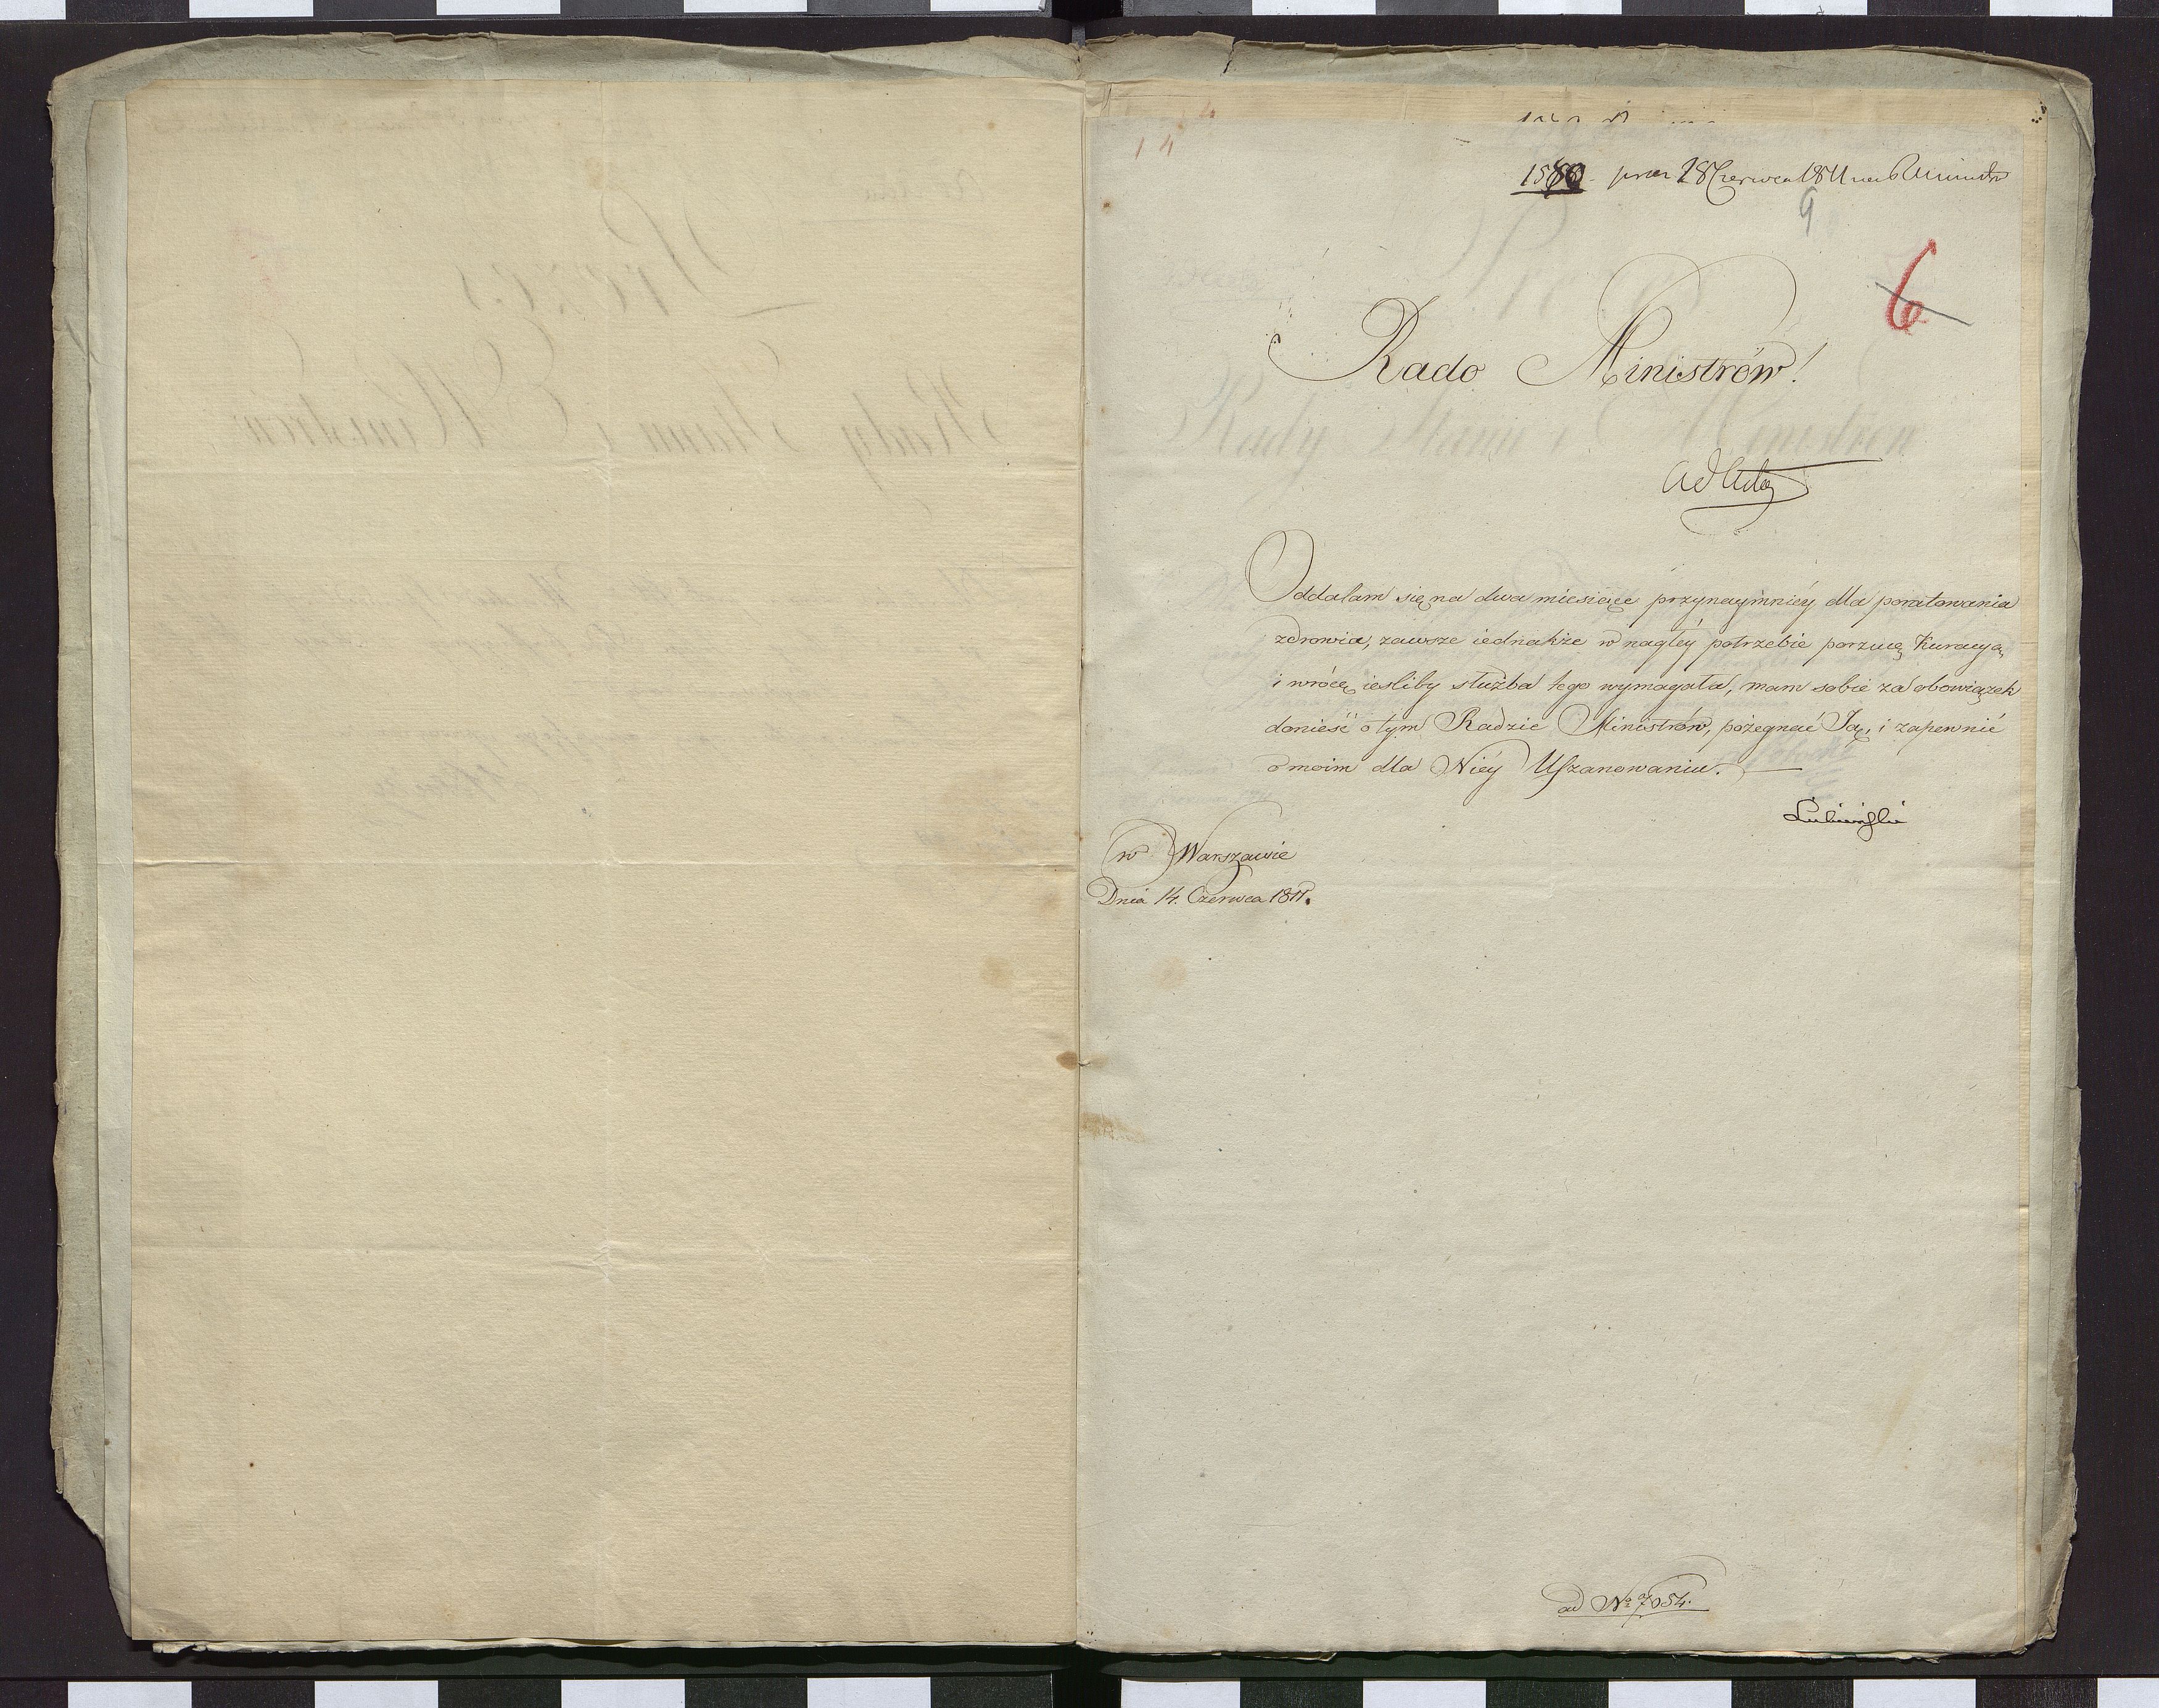 14
18 Czerwca 1811
9
6
Rado Ministrów!
ad Acta
Oddalam się na dwa miesiące przynaymniéy dla poratowania
zdrowia, zawsze iednakże w nagłéy potrzebie porzucę Kuracyą,
i wrócę, iesliby służba tego wymagała, mam sobie za obowiązek
donieść o tym Radzie Ministrów, pożegnać Ją, i zapewnić
o moim dla Niéy Uszanowaniu. —
w Warszawie
Dnia 14. Czerwca 1811.
ad No 7054.